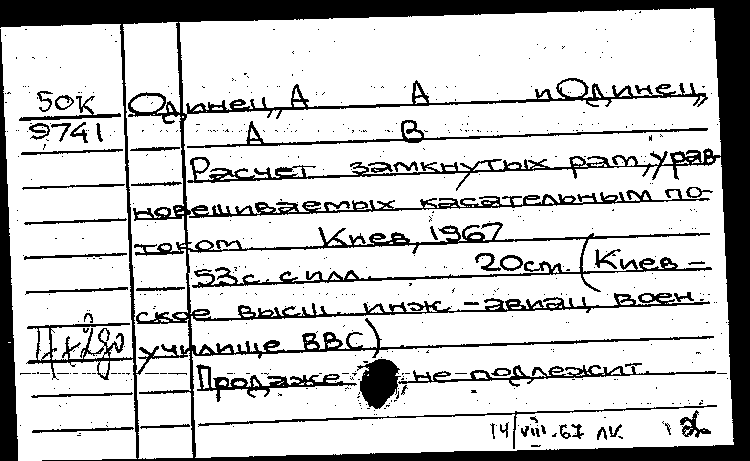 50К Одинец, А А и Одинец,
9741 А В
Расчет замкнутых рам, урав-
новешиваемых касательным по-
током. Киев, 1967
53 с. с илл. 20 см. (Киев-
ское высш. инж.-авиац. воен.
училище ВВС)
Продаже не подлежит.
14/VIII-67 ЛК